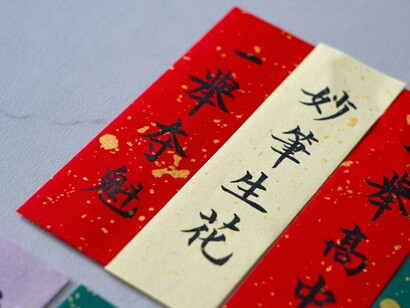 一舉夺魁
妙筆生花
一舉高中